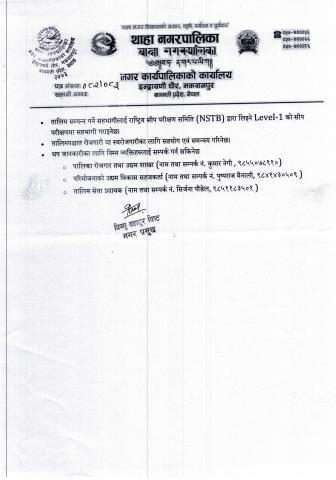 "थाहा नगर विकासको आधार, कृषि, पर्यटन र पूर्वाधार"
थाहा नगरपालिका
नगर कार्यपालिकाको कार्यालय
इन्द्रायणी चौर, मकवानपुर
बागमती प्रदेश, नेपाल
पत्र संख्याः ०८२/०८३
चलानी नम्बरः
• तालिम सम्पन्न गर्ने सहभागीलाई राष्ट्रिय सीप परीक्षण समिति (NSTB) द्वारा लिइने Level-1 को सीप
परीक्षणमा सहभागी गराइनेछ।
• तालिमपश्चात रोजगारी वा स्वरोजगारीका लागि सहयोग एवं समन्वय गरिनेछ।
• थप जानकारीका लागि निम्न व्यक्तिहरुलाई सम्पर्क गर्न सकिनेछ
○ पालिका रोजगार तथा उद्यम शाखा (नाम तथा सम्पर्क नं. कुमार नेगी , ९८४५०७८९१०)
○ परियोजनाको उद्यम विकास सहजकर्ता (नाम तथा सम्पर्क नं. पुष्पराज मैनाली, ९८४१४३०५०९)
○ तालिम सेवा प्रदायक (नाम तथा सम्पर्क नं. सिर्जना पौडेल, ९८५११८३५०१)
विष्णु बहादुर विष्ट
नगर प्रमुख